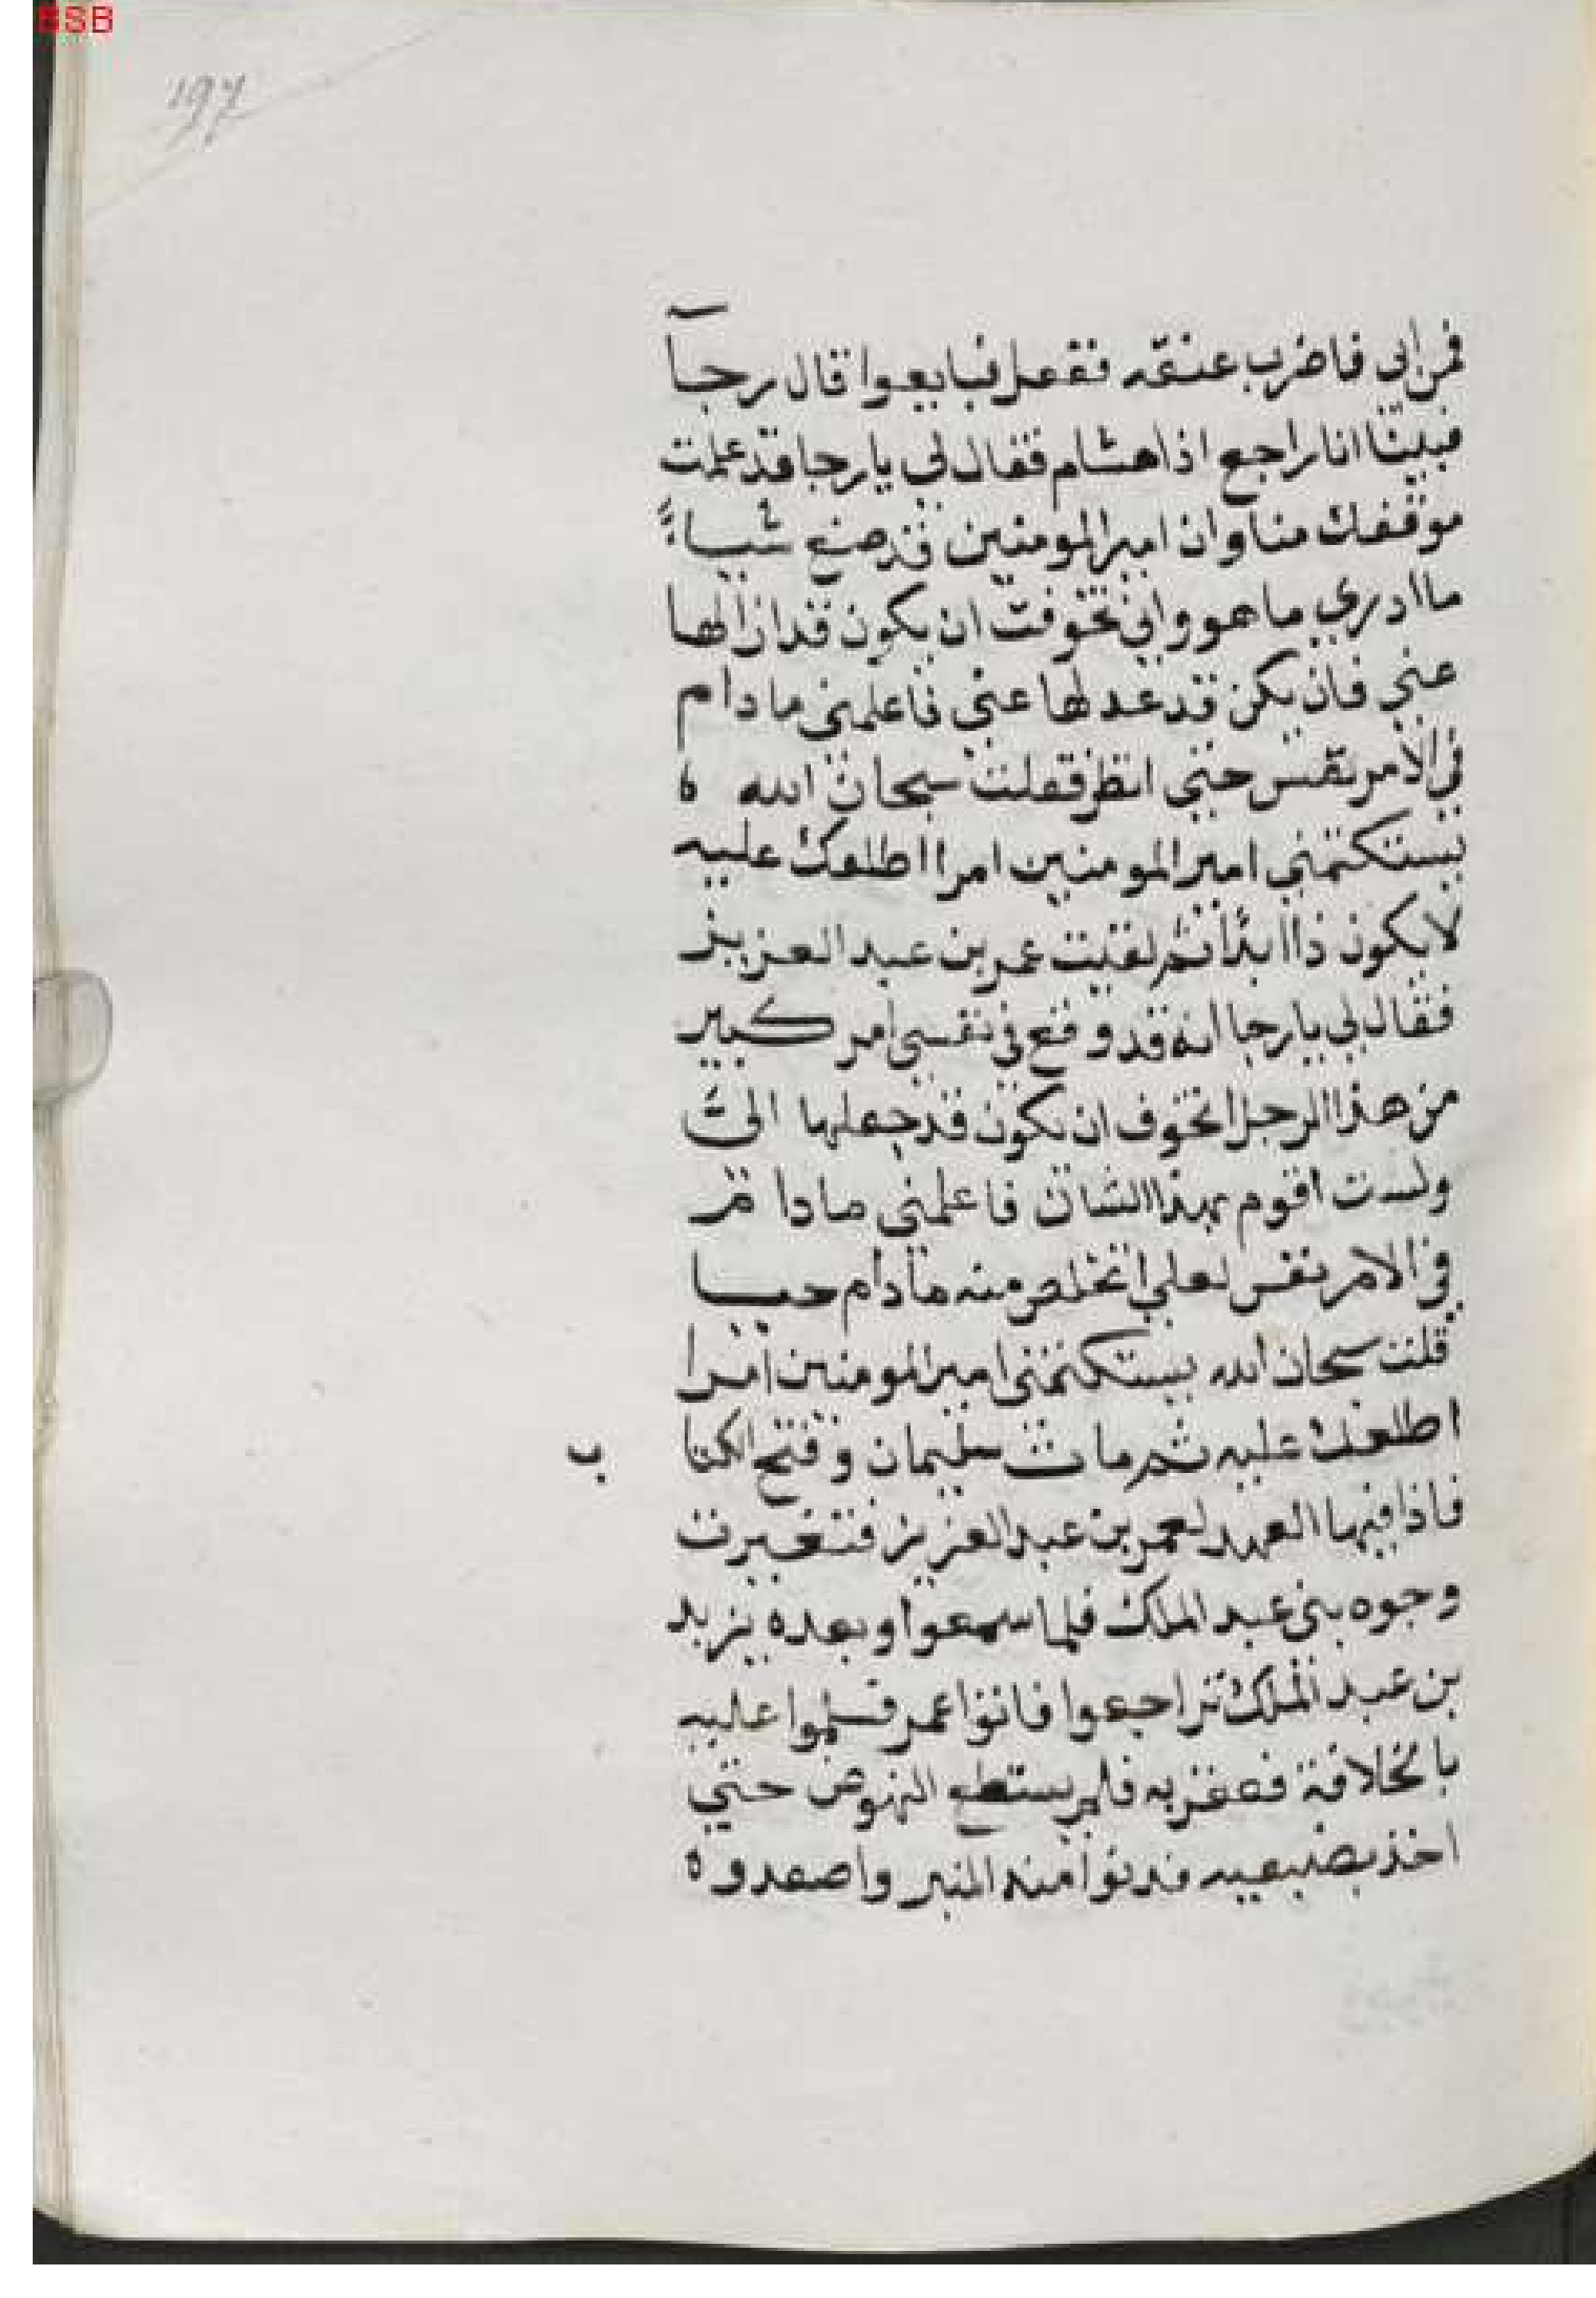 BSB
197
فمن ابى فاضرب عنقه ففعل فبايعوا قال رجآ
فبينا انا راجع اذا هشام فقال لي يا رجا قد علمت
موقفك منا وان امير المومنين قد صنع شياءً
ما ادري ما هو واني تخوفت ان يكون قد ازالها
عني فان يكن قد عدلها عني فاعلمني ما دام
في الامر نفس حتي انظر فقلت سبحان الله ه
يستكتمني امير المومنين امرا اطلعك عليه
لا يكون ذا ابدا ثم لقيت عمر بن عبد العزيز
فقال لي يا رجا انه قد وقع في نفسي امر كبير
من هذا الرجل اتخوف ان يكون قد جعلها الى
ولست اقوم بهذا الشان فاعلمني ما دا م
في الامر نفس لعلي اتخلص منه ما دام حيا
قلت سبحان الله يستكتمني امير المومنين امرا
اطلعك عليه ثم مات سليمان وفتح الكتا ب
فاذا فيها العهد لعمر بن عبد العزيز فتغيرت
وجوه بني عبد الملك فلما سمعوا وبعده يزيد
بن عبد الملك تراجعوا فاتوا عمر فسلموا عليه
بالخلافة فعقر به فلم يستطع النهوض حتي
اخذ بضبعيه فدنوا منه المنبر واصعدوه